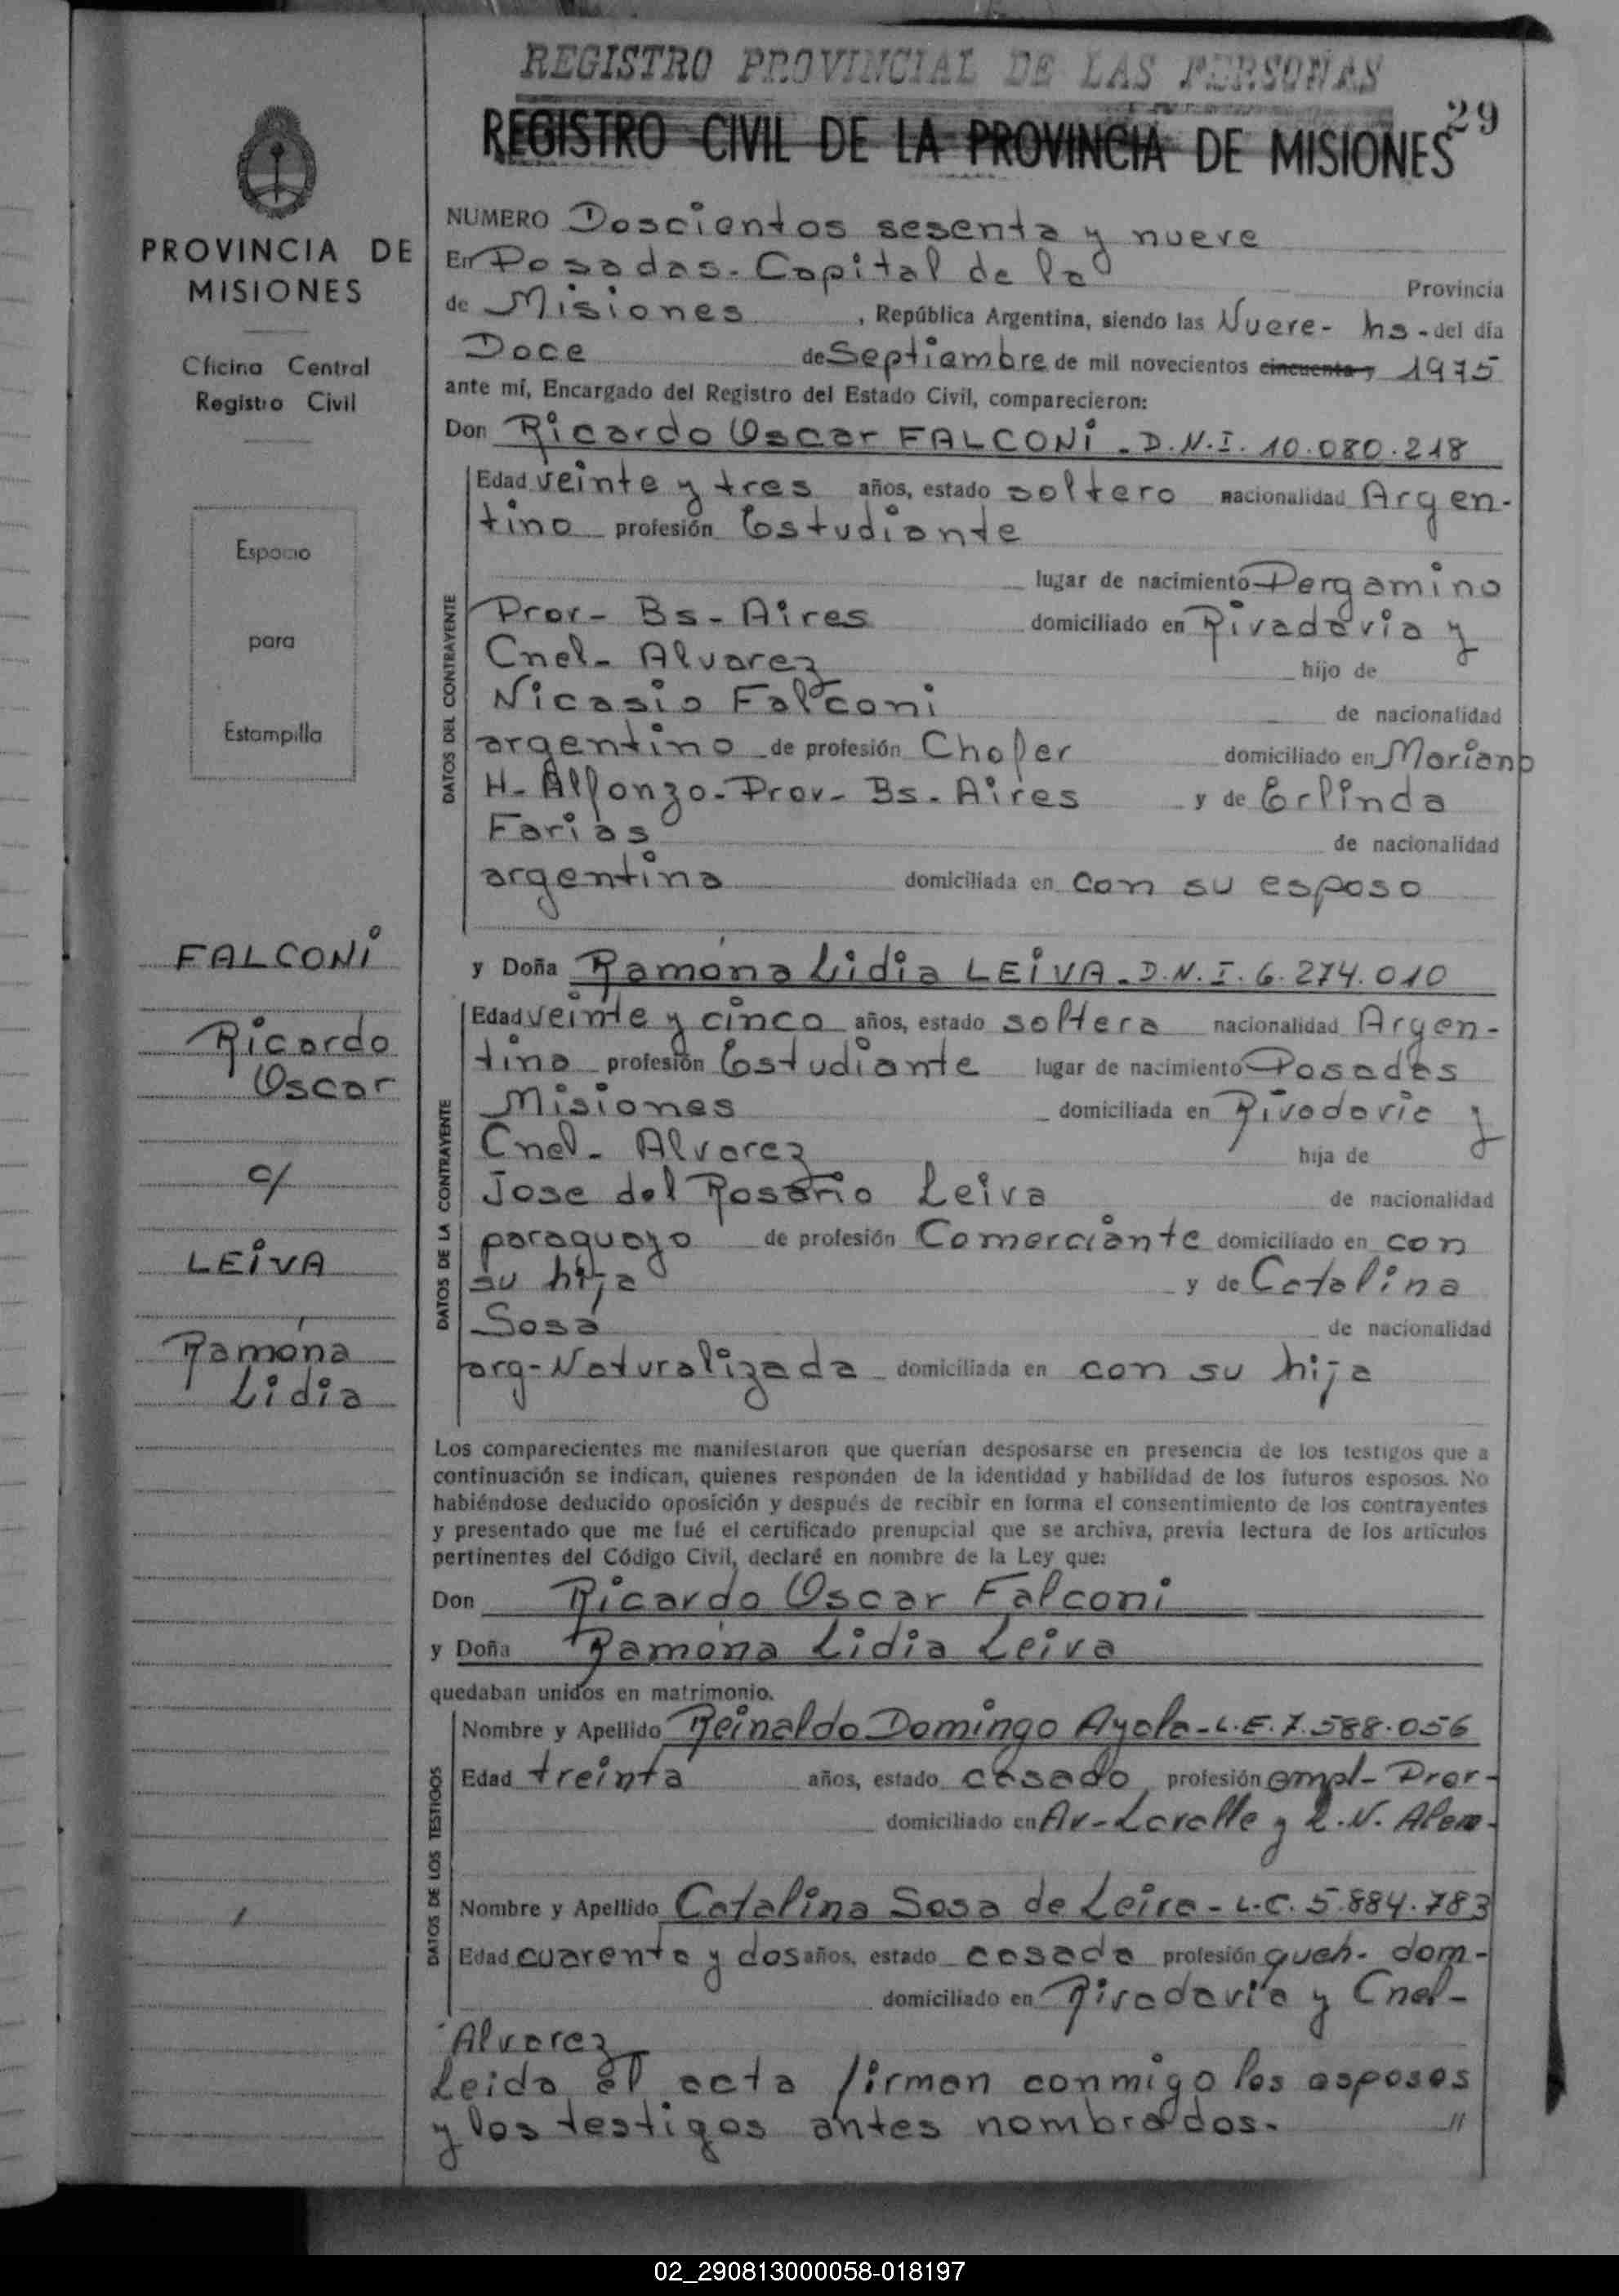 REGISTRO PROVINCIAL DE LAS PERSONAS
REGISTRO CIVIL DE LA PROVINCIA DE MISIONES
29
PROVINCIA DE
MISIONES
Oficina Central
Registro Civil
Espacio
para
Estampilla
FALCONI
Ricardo
Oscar
c/
LEIVA
Ramona
Lidia
NUMERO Doscientos sesenta y nueve
En Posadas-Capital de la Provincia
de Misiones, República Argentina, siendo las Nueve- hs-del día
Doce de Septiembre de mil novecientos cincuenta y 1975
ante mí, Encargado del Registro del Estado Civil, comparecieron:
Don Ricardo Oscar FALCONI-D.N.I. 10.080.218
DATOS DEL CONTRAYENTE
Edad veinte y tres años, estado soltero nacionalidad Argen-
tino profesión Estudiante
lugar de nacimiento Pergamino
Prov- Bs- Aires domiciliado en Rivadavia y
Cnel- Alvarez hijo de
Nicasio Falconi de nacionalidad
argentino de profesión Chofer domiciliado en Mariano
H- Alfonzo-Prov- Bs-Aires y de Erlinda
Farias de nacionalidad
argentina domiciliada en con su esposo
y Doña Ramona Lidia LEIVA-D.N.I. 6.274.010
DATOS DE LA CONTRAYENTE
Edad veinte y cinco años, estado soltera nacionalidad Argen-
tina profesión Estudiante lugar de nacimiento Posadas
Misiones domiciliada en Rivadavia y
Cnel- Alvarez hija de
Jose del Rosario Leiva de nacionalidad
paraguayo de profesión Comerciante domiciliado en con
su hija y de Catalina
Sosa de nacionalidad
arg-Naturalizada domiciliada en con su hija
Los comparecientes me manifestaron que querían desposarse en presencia de los testigos que a
continuación se indican, quienes responden de la identidad y habilidad de los futuros esposos. No
habiéndose deducido oposición y después de recibir en forma el consentimiento de los contrayentes
y presentado que me fué el certificado prenupcial que se archiva, previa lectura de los artículos
pertinentes del Código Civil, declaré en nombre de la Ley que:
Don Ricardo Oscar Falconi
y Doña Ramona Lidia Leiva
quedaban unidos en matrimonio.
DATOS DE LOS TESTIGOS
Nombre y Apellido Reinaldo Domingo Ayala-L.E. 7.588.056
Edad treinta años, estado casado profesión empl- Prov-
domiciliado en Av-Lavalle y L.N. Alem-
Nombre y Apellido Catalina Sosa de Leiva-L.C. 5.884.783
Edad cuarenta y dos años, estado casada profesión queh- dom-
domiciliado en Rivadavia y Cnel-
Alvarez
Leida el acta firman conmigo los esposos
y los testigos antes nombrados- "
02_290813000058-018197